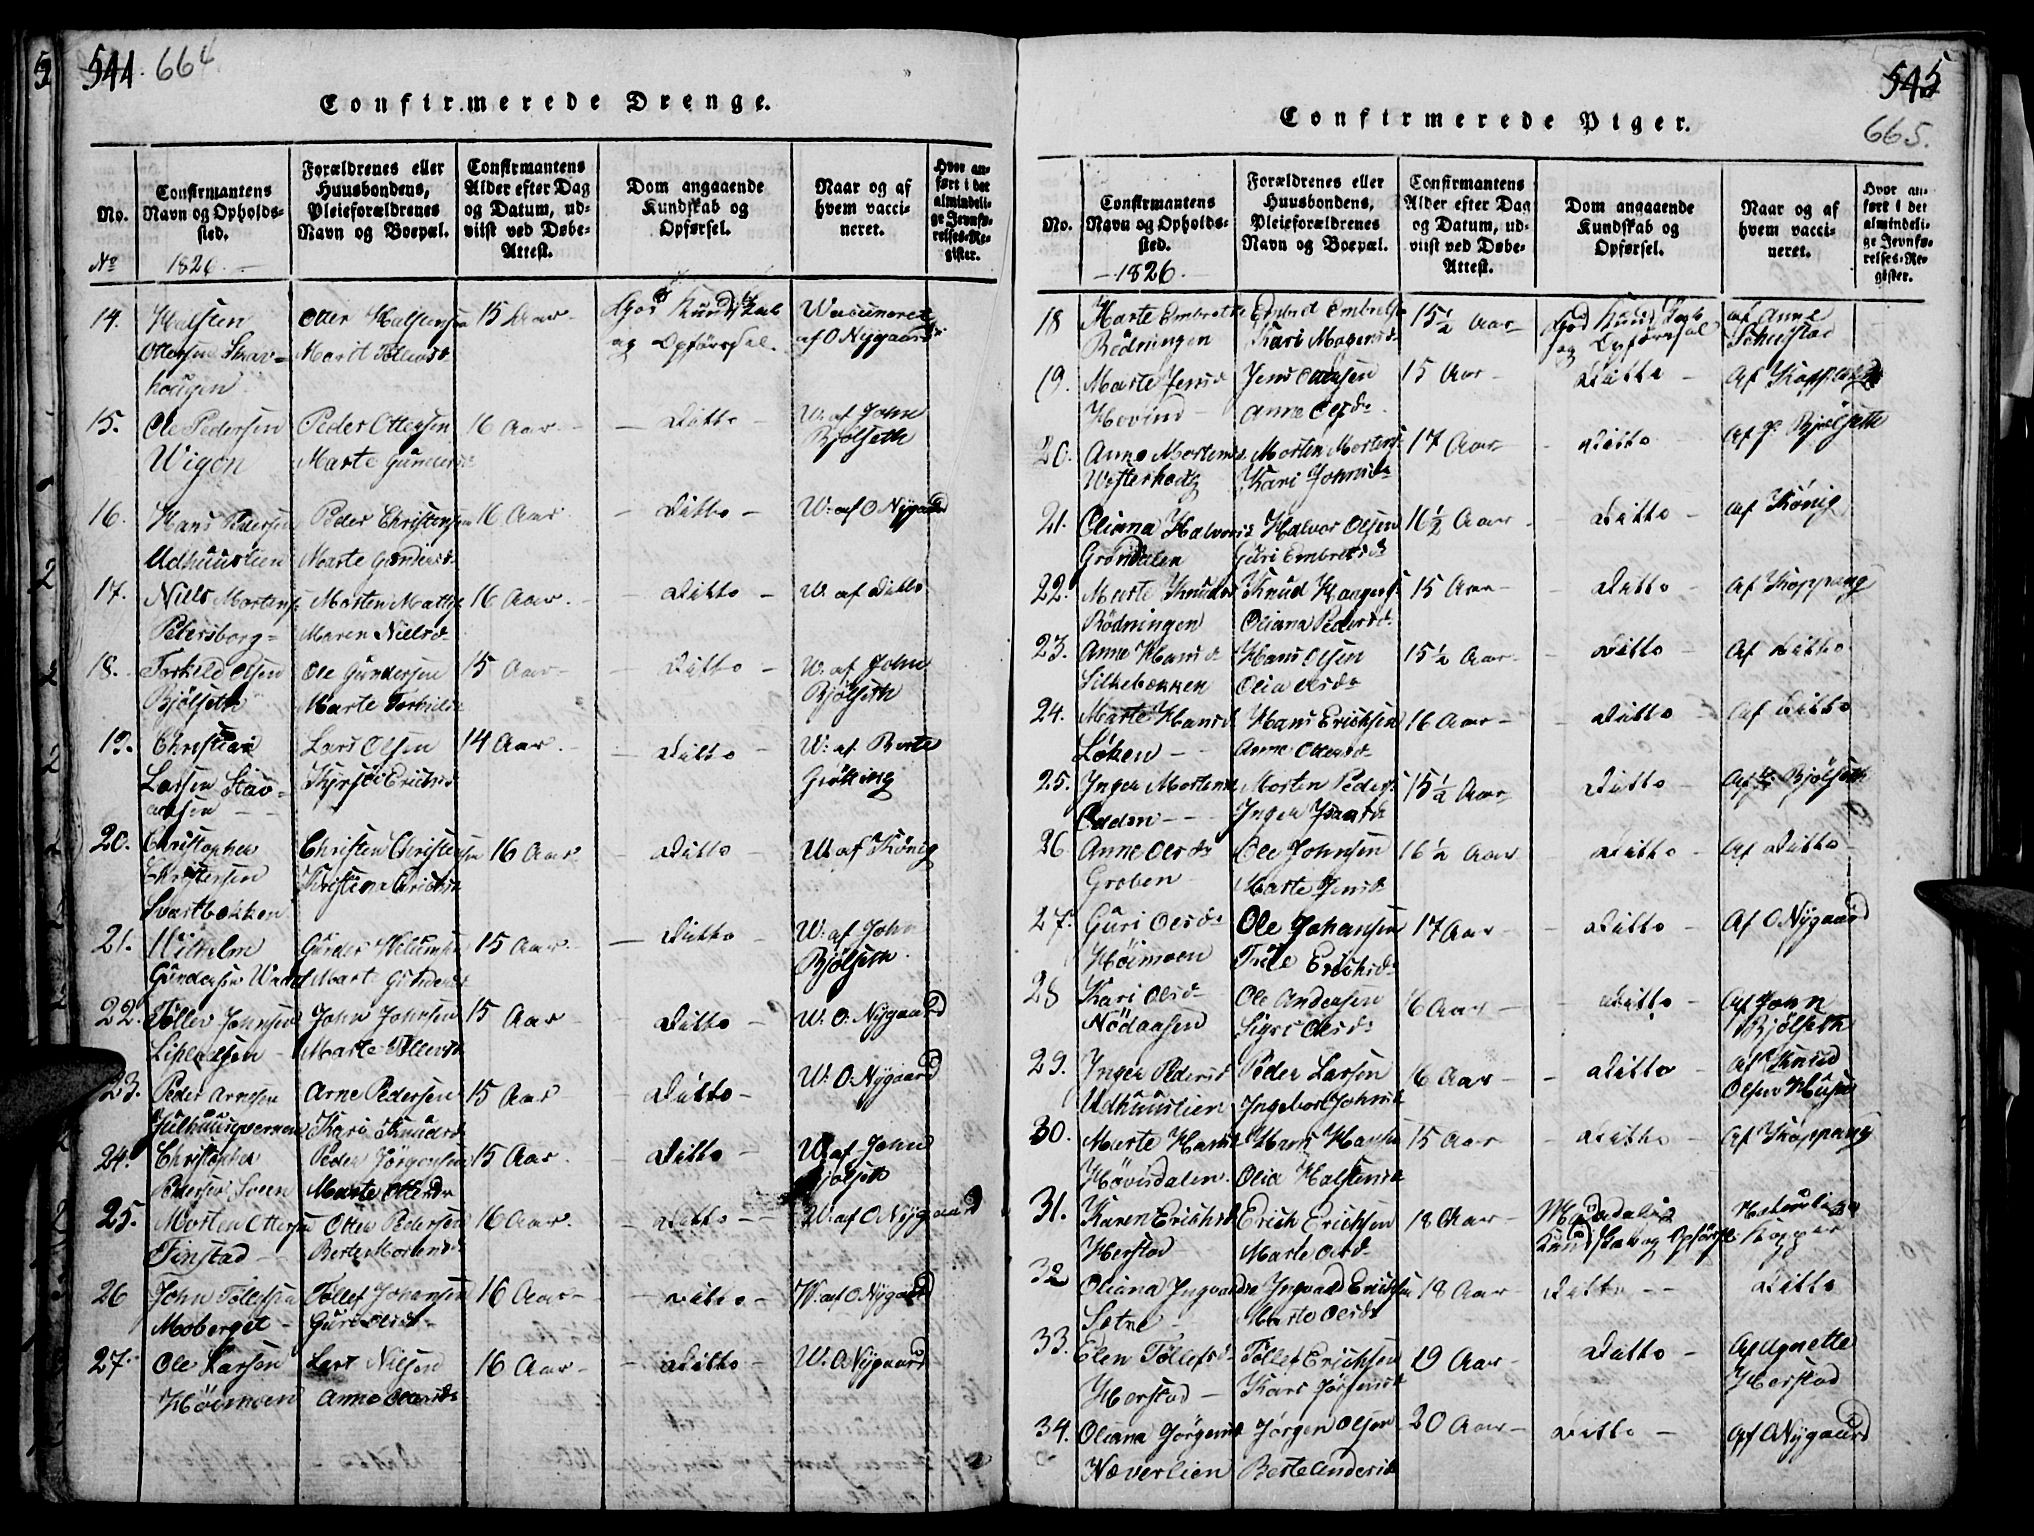 544. 664
Confirmerede Drenge.
No.
Confirmantens Navn og Opholds-sted.
Forældrenes eller Huusbondens, Pleieforældrenes Navn og Boepæl.
Confirmantens Alder efter Dag og Datum, ud-viist ved Døbe-Attest.
Dom angaaende Kundskab og Opførsel.
Naar og af hvem vacci-neret.
Hvor an-ført i det almindeli-ge Jevnfø-relses-Re-gister.
No 1826.
14. Halsten Otter Halstensen 15 Aar God Kundskab Waccineret
Ottersen Marit Tollensd og Opførsel. af O Nygaard
hougen
15. Ole Pedersen Peder Ottersen 16 Aar - Ditto - W. af John
Wigen Marte Gundersd Bjølseth
16. Hans Pedersen Peder Christensen 16 Aar - Ditto - W. af O Nygaard
Udhuuslien Marte Gundersd
17. Niels Mortens Morten Mathis 16 Aar. - Ditto - W. af Ditto
Petersborg Maren Nielsd
18. Torkild Olsen Ole Gundersen 15 Aar - Ditto - W. af John
Bjølseth Marte Torkilds Bjølseth
19. Christian Lars Olsen 14 Aar. - Ditto - W. af Berte
Larsen Stav- Erichsd
aasen
20. Christopher Christen Christensen 16 Aar - Ditto - W af König
Christensen Kristina Erichsd
Svartbekken
21. Wilhelm Gunder 15 Aar - Ditto - W. af John
Gundersen Mart Gundersd Bjølseth
22. Tollev Johnsen John Johnsen 15 Aar - Ditto - W. O. Nygaard
Marte Tollevsd
23. Peder Arnesen Arne Pedersen 15 Aar - Ditto - W. O. Nygaard
Kari Knudsd
24. Christopher Peder Jørgensen 15 Aar. - Ditto - W. af John
Pedersen Soeen Marte Ottersdr Bjølseth
25. Morten Ottersen Otter Pedersen 16 Aar. - Ditto - W. af O Nygaard
Finstad Berte Mortensd
26 John Tollefsen Tollef Johansen 16 Aar - Ditto - W. af O Nygaard
Moberget - Guri Olsd
27. Ole Larsen Lars Nilsen 16 Aar - Ditto - W. O Nygaard
Höimoen Anne Olsd
545
665.
Confirmerede Piger.
No.
Confirmantens Navn og Opholds-sted.
Forældrenes eller Huusbondens, Pleieforældrenes Navn og Boepæl.
Confirmantens Alder efter Dag og Datum, ud-viist ved Døbe-Attest.
Dom angaaende Kundskab og Opførsel.
Naar og af hvem vacci-neret.
Hvor an-ført i det almindeli-ge Jevnfø-relses-Re-gister.
- 1826.
18 Marte Embretsd Embret Embretsen 15½ Aar God Kundskab af Anne
Rödningen Kari Mogensd og Opførsel
19. Marte Jensd Jens Olsen 15 Aar - Ditto - Af Koppang
Hovind Anne Olsd
20. Anne Mortensd Morten Mortens 17 Aar - Ditto - Af J. Bjølseth
Westerhoug Kari Johnsd
21. Oliana Halvorsd Halvor Olsen 16½ Aar - Ditto - af König
Gröndalen Guri Embretsd
22. Marte Knudsd Knud Haagens 15 Aar - Ditto - Af Koppang
Rödningen Oliana Pedersd
23. Anne Hansd Hans Olsen 15½ Aar - Ditto - Af Ditto
Silkebekken Olia Olsd
24. Marte Hansd Hans Erichsen 16 Aar - Ditto - Af Ditto
Løken - Anne Ottersd
25. Inger Mortensd Morten Peders 15½ Aar Ditto - Af J. Bjølseth
Odden - Inger
26 Anne Olsd Ole Johnsen 16½ Aar - Ditto - Af Ditto
Groben Marte Jensd
27. Guri Olsd Ole Johansen 17 Aar - Ditto - Af O Nygaard
Höimoen Erichsd
28 Kari Olsd Ole Andersen 16 Aar - Ditto - Af John
Nödaasen Sigri Olsd Bjølseth
29. Inger Pedersd Peder Larsen 16 Aar - - Ditto Af Knud
Udhuuslien Ingebor Johnsd Olsen
30. Marte Hansd Hans Hansen 15 Aar - Ditto - Af Koppang
Hövisdalen Olia Halstensd
31. Karen Erichsd Erich Erichsen 18 Aar - Maadelig Naturlige
Herstad Marte Olsd Kundskab og Opførsel Kopper
32 Oliana Ingvaldsd Ingvald Erichsen 18 Aar - Ditto - - Ditto
Sætre - Marte Olsd
33. Elen Tollefsd Tollef Erichsen 19 Aar - Ditto - Af Agnette
Herstad - Kari Herstad
34. Oliana Jörgensd Jörgen Olsen 20 Aar - Ditto - Af O Nygaard
Næverlien Berte Andersd